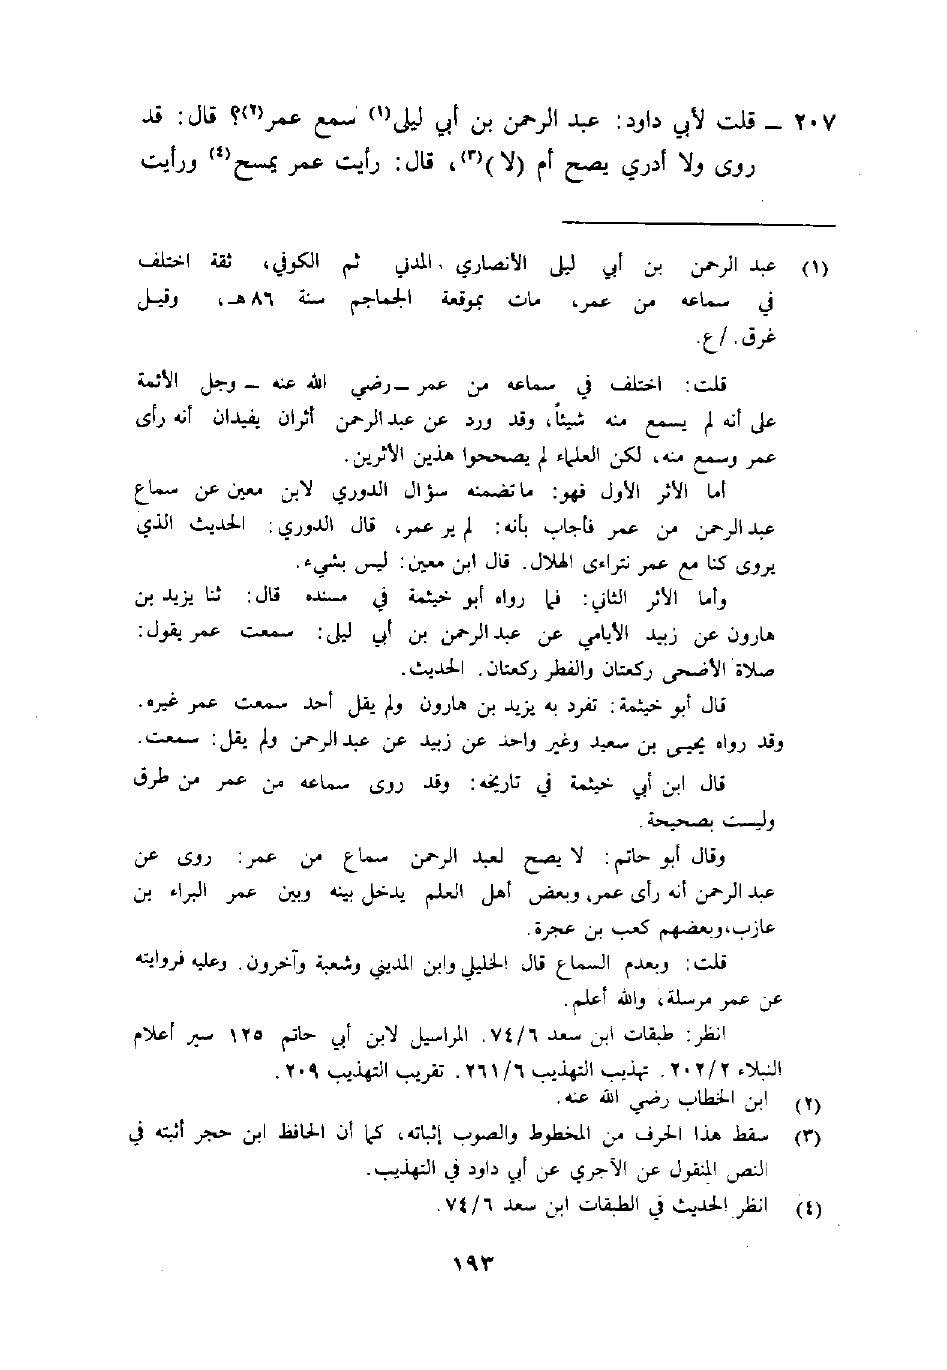 ٢٠٧ ـ قلت لأبي داود: عبد الرحمن بن أبي ليلى(١) سمع عمر(٢)؟ قال: قد
روى ولا أدري يصح أم (لا)(٣)، قال: رأيت عمر يمسح(٤) ورأيت
(١) عبد الرحمن بن أبي ليلى الأنصاري، المدني ثم الكوفي، ثقة اختلف
في سماعه من عمر، مات بموقعة الجماجم سنة ٨٦هـ، وقيل
غرق. /ع.
قلت: اختلف في سماعه من عمر ـ رضي الله عنه ـ وجل الأئمة
على أنه لم يسمع منه شيئاً، وقد ورد عن عبد الرحمن أثران يفيدان أنه رأى
عمر وسمع منه، لكن العلماء لم يصححوا هذين الأثرين.
أما الأثر الأول فهو: ما تضمنه سؤال الدوري لابن معين عن سماع
عبد الرحمن من عمر فأجاب بأنه: لم ير عمر، قال الدوري: الحديث الذي
يروى كنا مع عمر نتراءى الهلال. قال ابن معين: ليس بشيء.
وأما الأثر الثاني: فما رواه أبو خيثمة في مسنده قال: ثنا يزيد بن
هارون عن زبيد الأيامي عن عبد الرحمن بن أبي ليلى: سمعت عمر يقول:
صلاة الأضحى ركعتان والفطر ركعتان. الحديث.
قال أبو خيثمة: تفرد به يزيد بن هارون ولم يقل أحد سمعت عمر غيره.
وقد رواه يحيى بن سعيد وغير واحد عن زبيد عن عبد الرحمن ولم يقل: سمعت.
قال ابن أبي خيثمة في تاريخه: وقد روى سماعه من عمر من طرق
وليست بصحيحة.
وقال أبو حاتم: لا يصح لعبد الرحمن سماع من عمر: روى عن
عبد الرحمن أنه رأى عمر، وبعض أهل العلم يدخل بينه وبين عمر البراء بن
عازب، وبعضهم كعب بن عجرة.
قلت: وبعدم السماع قال الخليلي وابن المديني وشعبة وآخرون. وعليه فروايته
عن عمر مرسلة، والله أعلم.
انظر: طبقات ابن سعد ٧٤/٦. المراسيل لابن أبي حاتم ١٢٥ سير أعلام
النبلاء ٢٠٢/٢. تهذيب التهذيب ٢٦١/٦. تقريب التهذيب ٢٠٩.
(٢) ابن الخطاب رضي الله عنه.
(٣) سقط هذا الحرف من المخطوط والصوب إثباته، كما أن الحافظ ابن حجر أثبته في
النص المنقول عن الآجري عن أبي داود في التهذيب.
(٤) انظر الحديث في الطبقات ابن سعد ٧٤/٦.
١٩٣